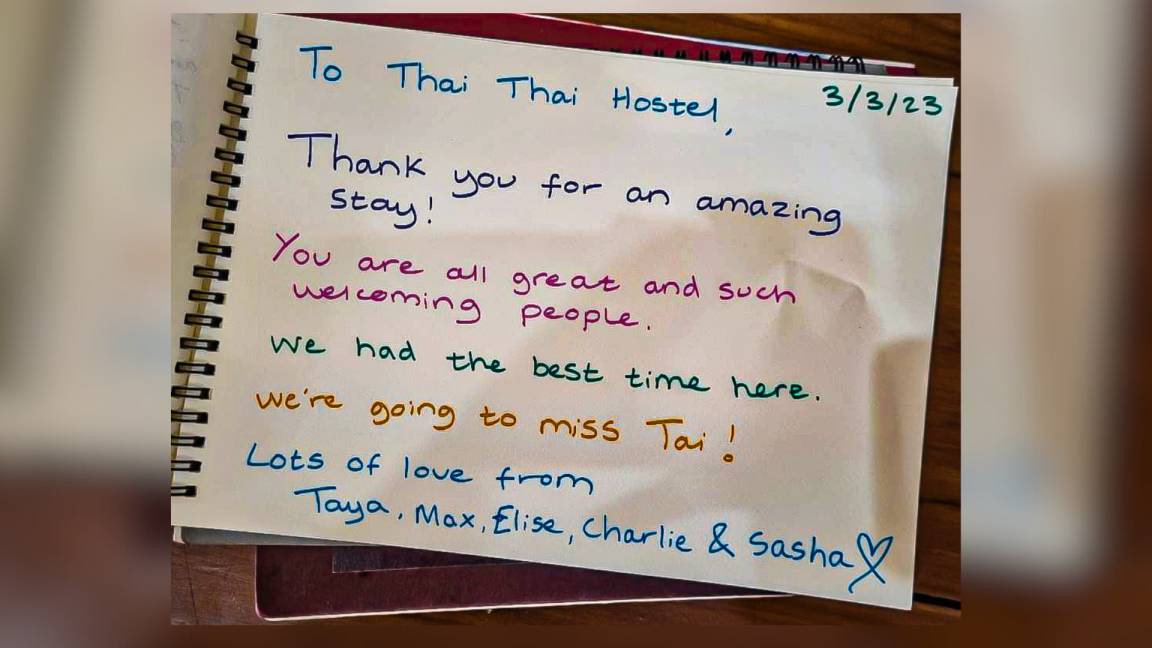 To Thai Thai Hostel,
3/3/23
Thank you for an amazing
stay!
You are all great and such
welcoming people.
We had the best time here.
We're going to miss Tai!
Lots of love from
Taya, Max, Elise, Charlie & Sasha